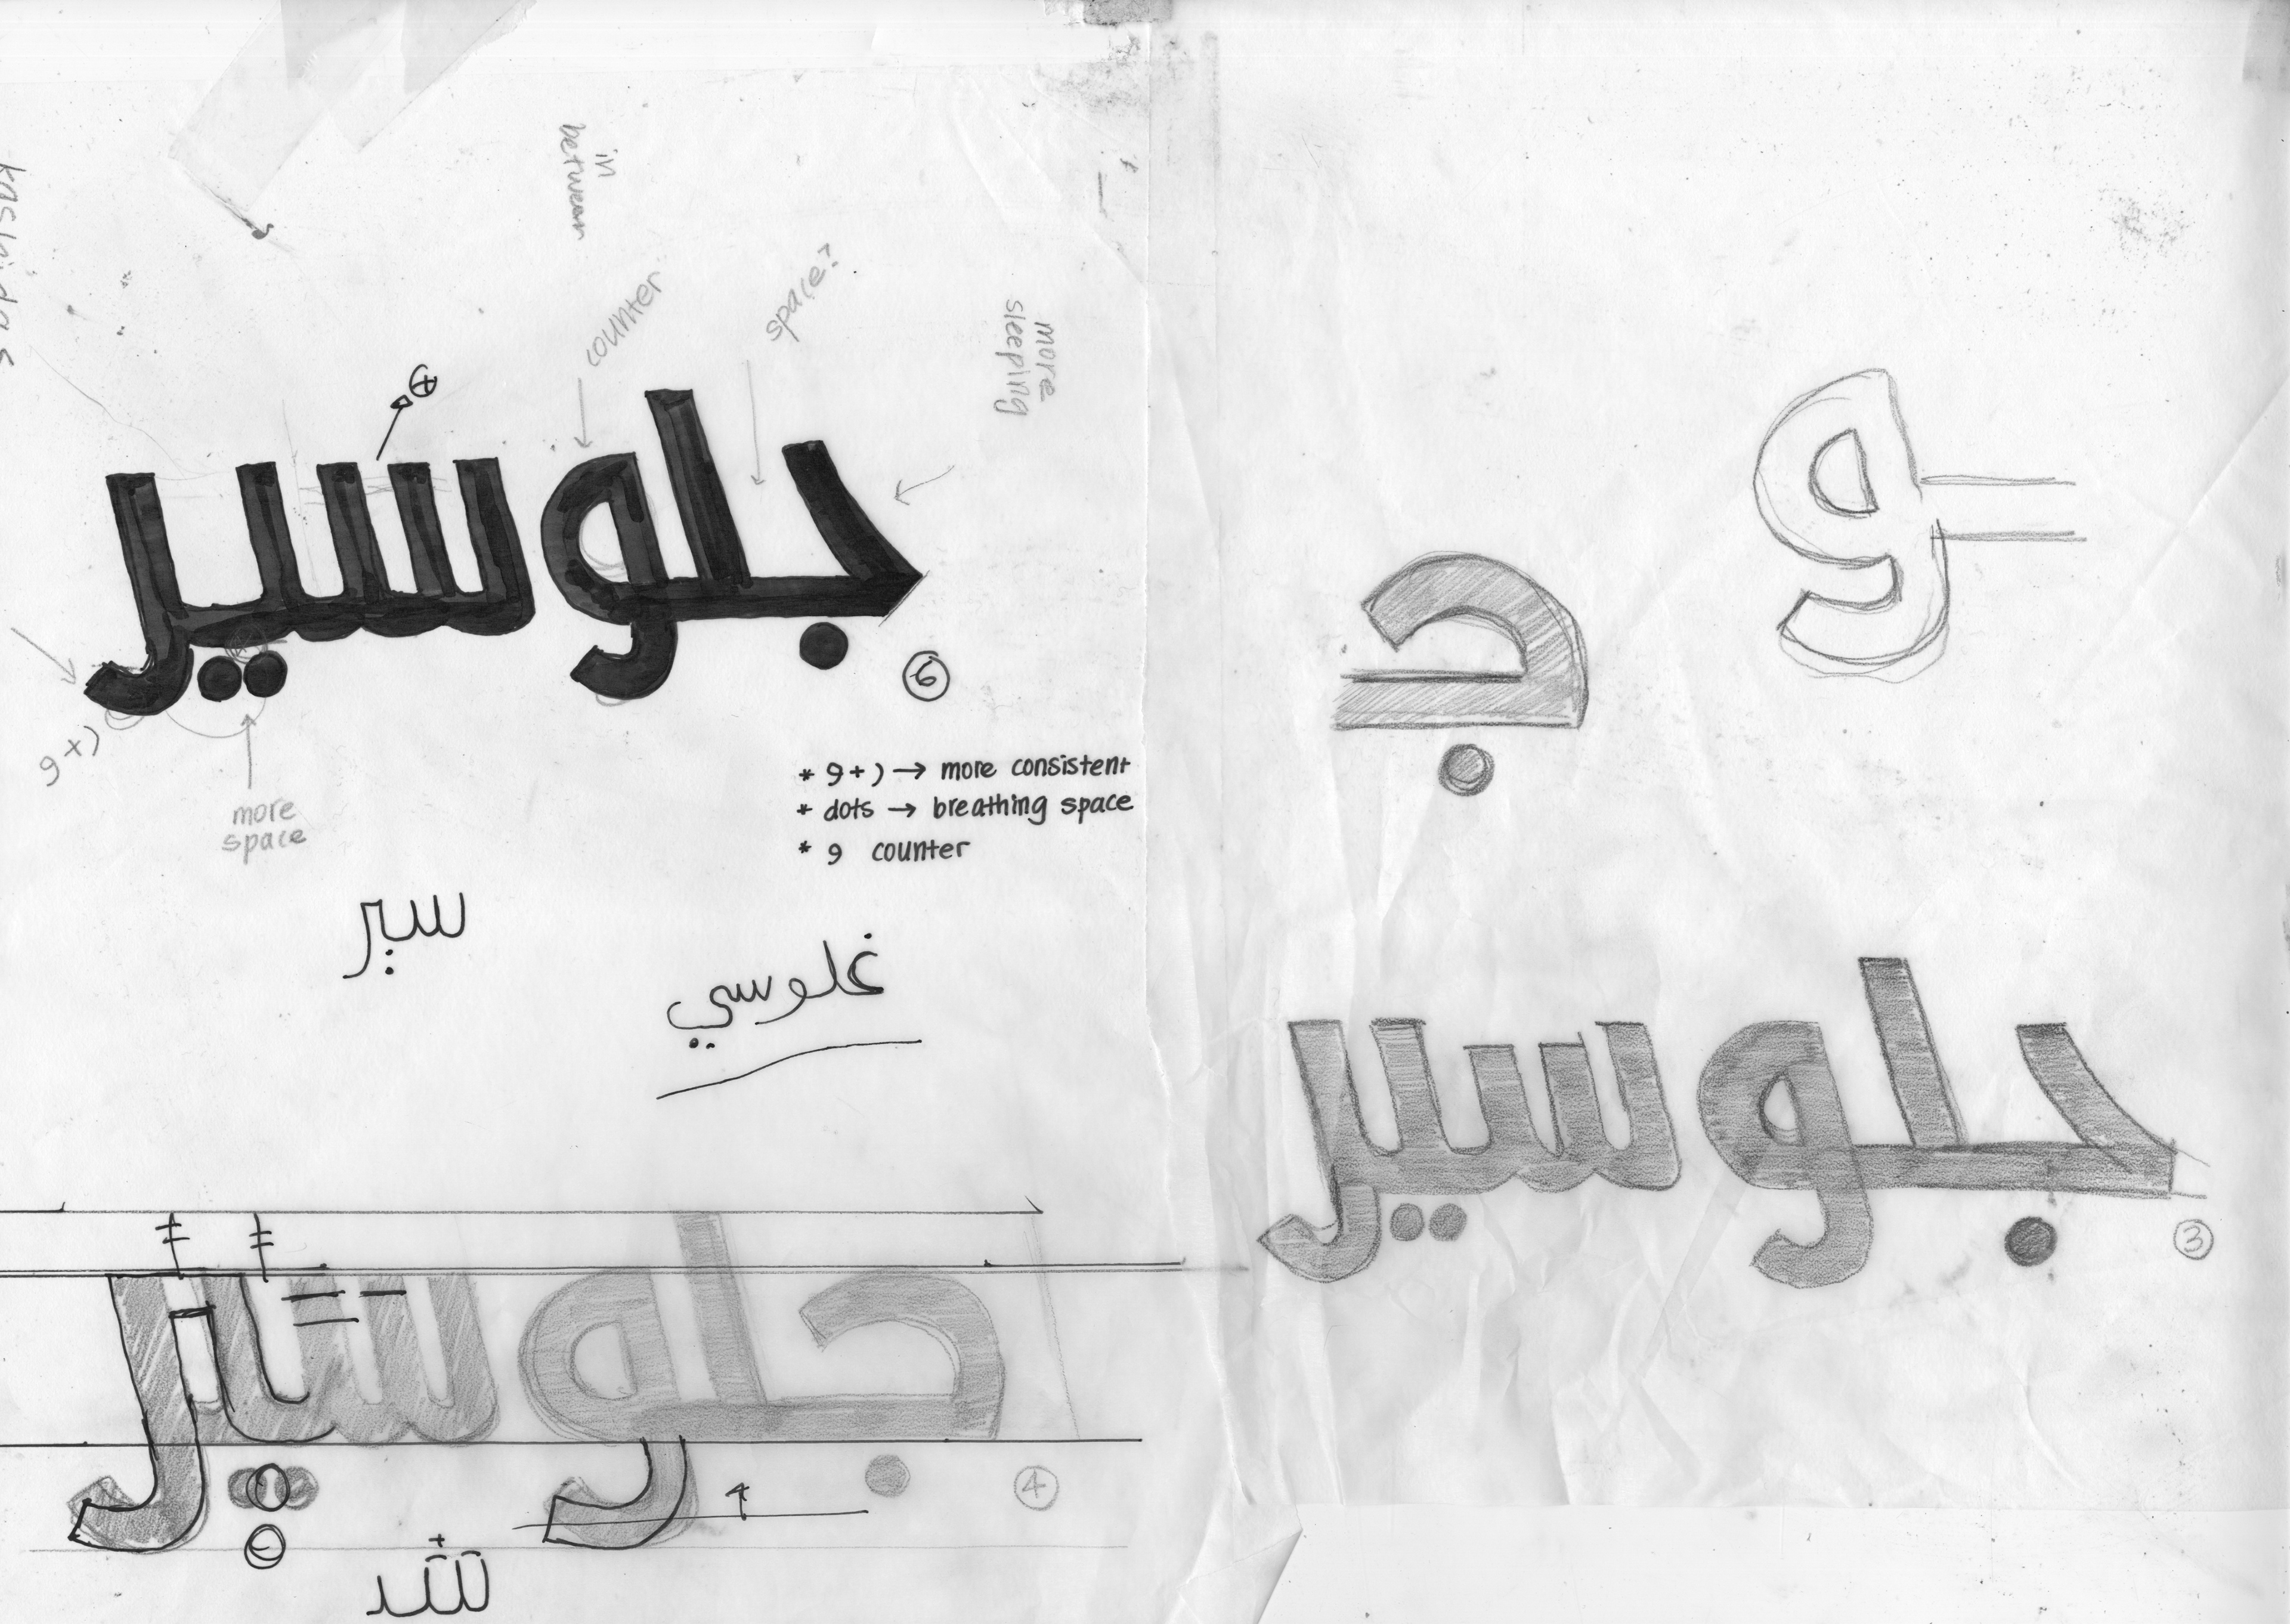 in
between
counter
space?
more
sleeping
kashidas
+
جلوسير
6
و + ر
more
space
* و + ر → more consistent
* dots → breathing space
* و counter
سير
غلوسي
جلوسير
4
و
ج
جلوسير
3